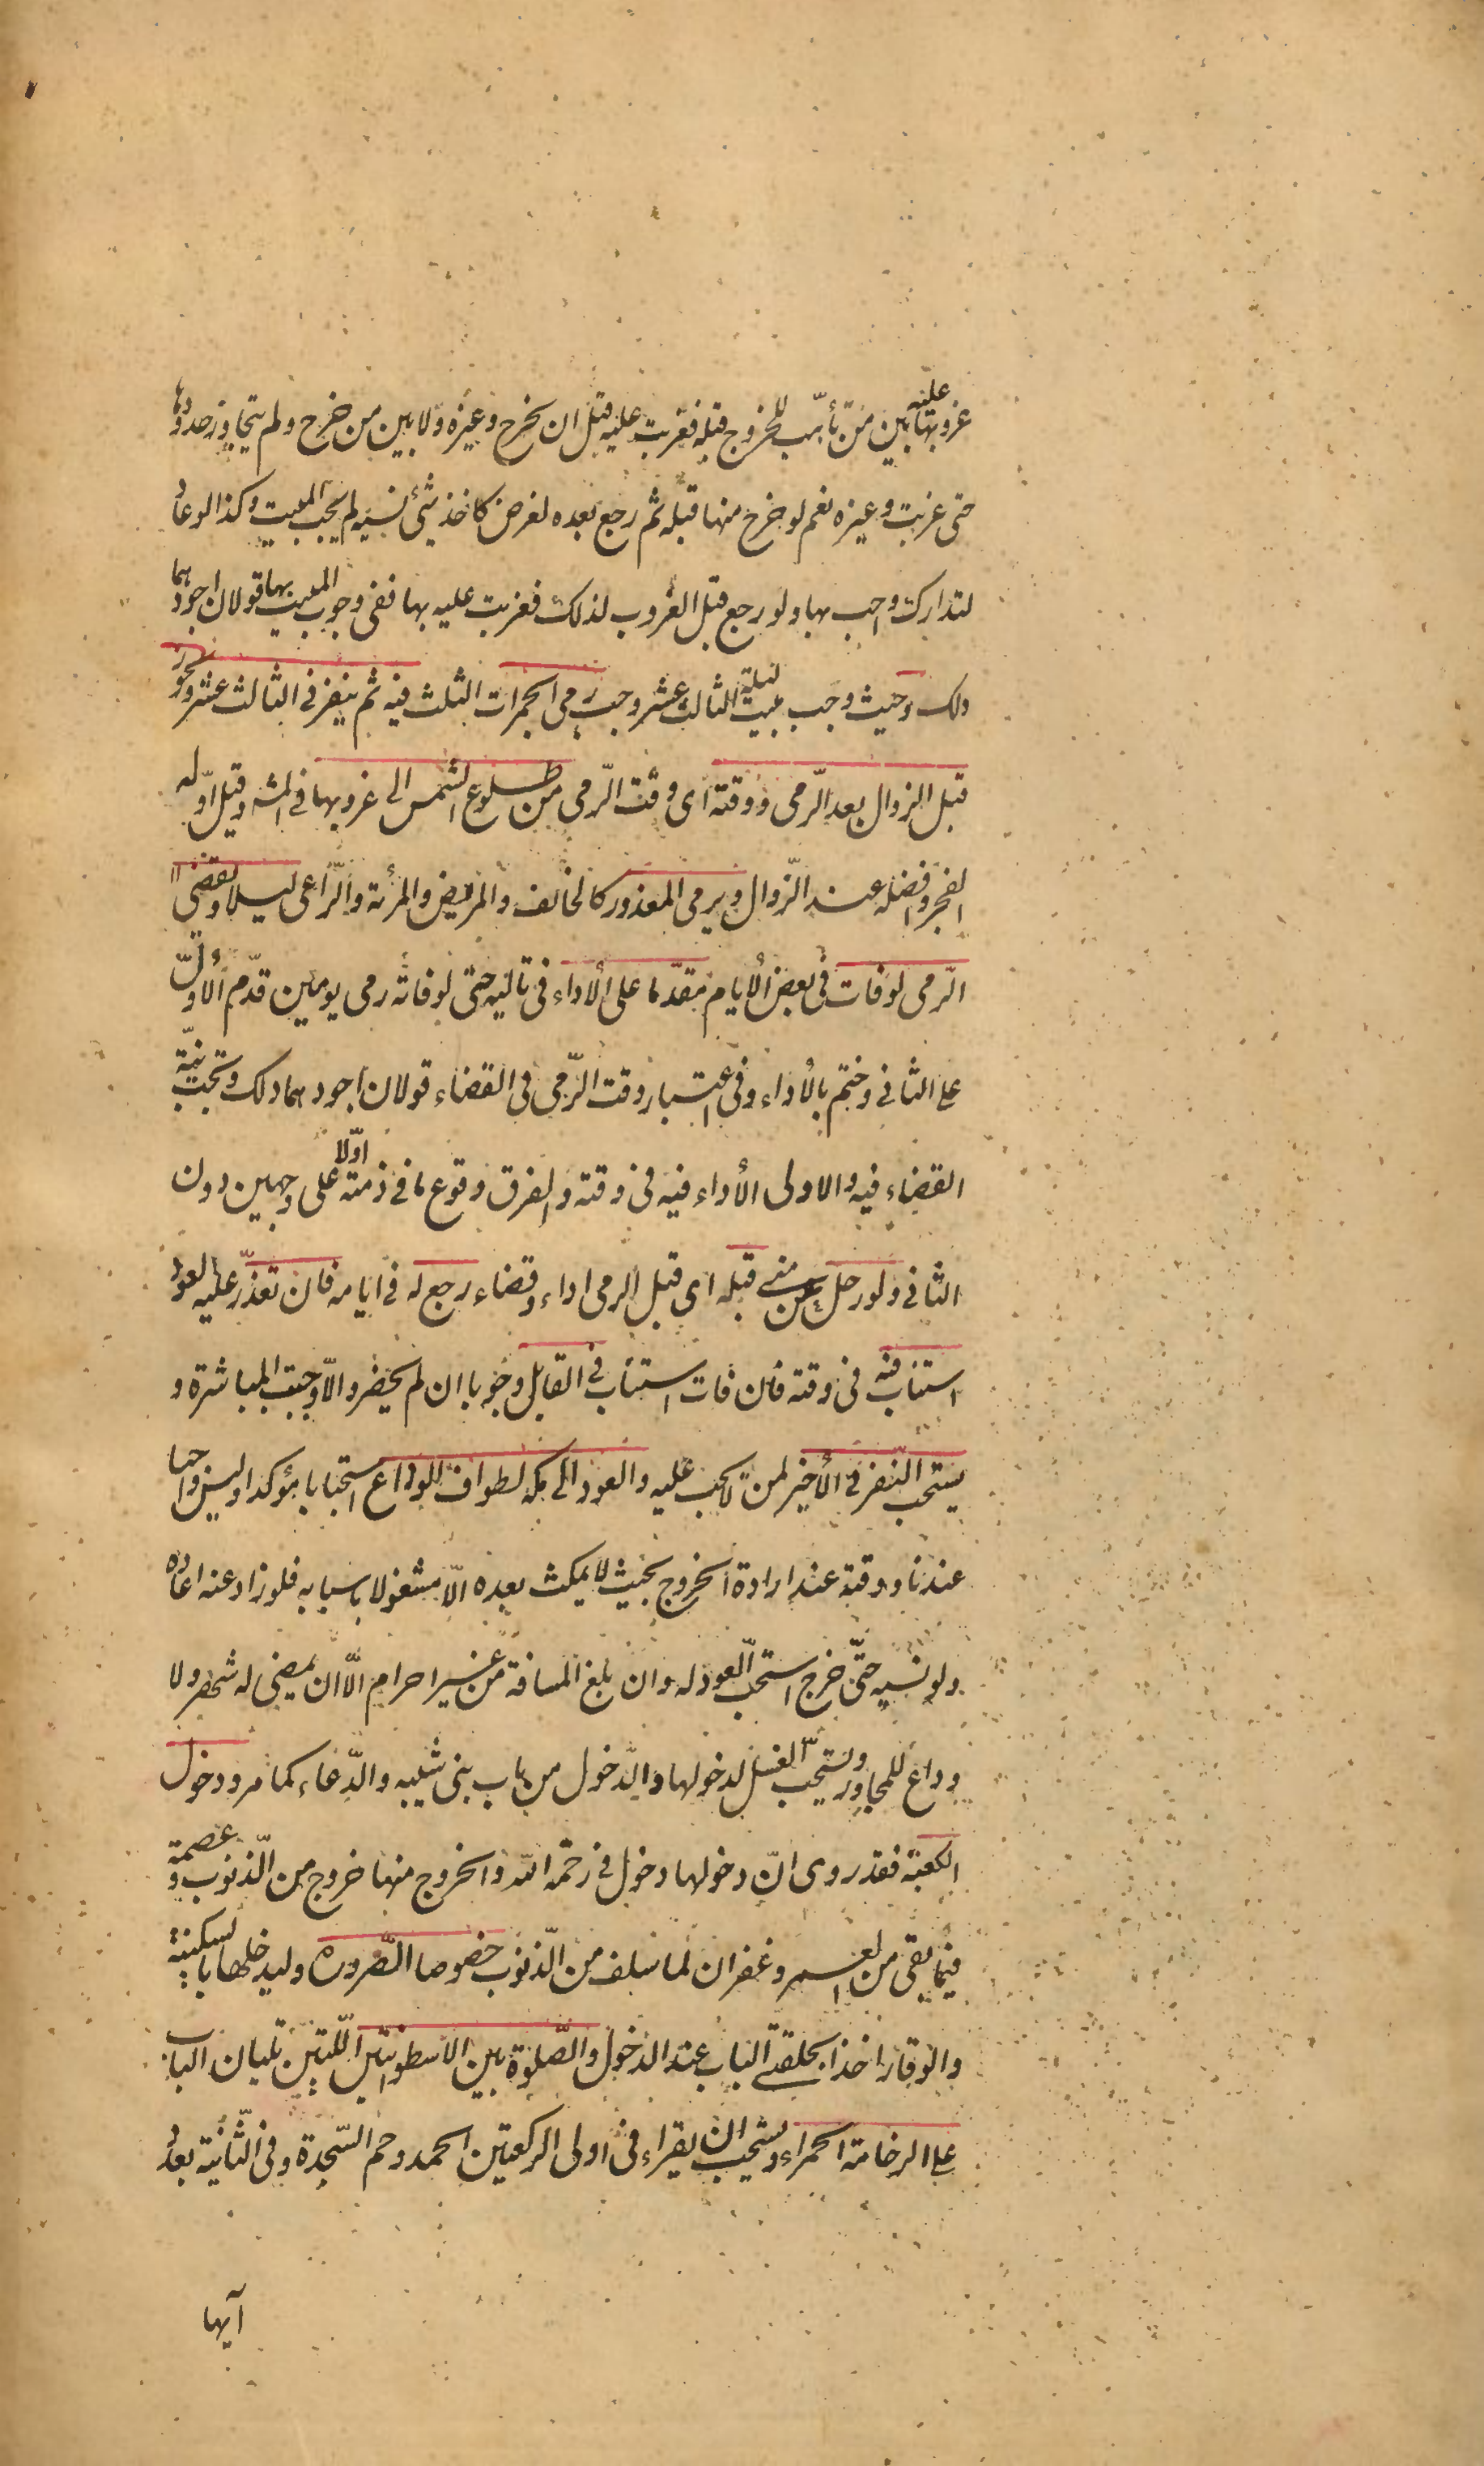 غروبها عليه بين من تأهّب للخروج قبله فغربت عليه قبل ان يخرج وغيره ولا بين من خرج ولم يتجاوز حدودها
حتى غربت وغيره نعم لو خرج منها قبله ثم رجع بعده لغرض كاخذ شئ نسيه لم يجب المبيت وكذا لو عاد
لتدارك واجب بها ولو رجع قبل الغروب لذلك فغربت عليه بها ففى وجوب المبيت بها قولان اجودهما
ذلك وحيث وجب مبيت ليلة الثالث عشر وجب رمى الجمرات الثلث فيه ثم ينفر فى الثالث عشر ويجوز
قبل الزوال بعد الرّمى ووقته اى وقت الرّمى من طلوع الشمس الى غروبها فى المشه وقيل اوّله
الفجر وافضله عند الزّوال ويرمى المعذور كالخائف والمريض والمرئة والرّاعى ليلا ويقضى
الرّمى لو فات فى بعض الأيام مقدّما على الأداء فى تاليه حتى لو فاته رمى يومين قدّم الأوّل
على الثانى وختم بالأداء وفى اعتبار وقت الرّمى فى القضاء قولان اجودهما ذلك وتجب نيّة
القضاء فيه والاولى الأداء فيه فى وقته والفرق وقوع ما فى ذمته اوّلا على وجهين دون
الثانى ولو رحل من منى قبله اى قبل الرمى اداء وقضاء رجع له فى ايامه فان تعذّر عليه العود
استناب فيه فى وقته فان فات استناب فى القابل وجوبا ان لم يحضر والّا وجبت المباشرة و
يستحب النّفر فى الأخير لمن لا يجب عليه والعود الى مكه لطواف الوداع استحبابا مؤكدا وليس واجبا
عندنا ووقته عند ارادة الخروج بحيث لا يمكث بعده الّا مشغولا باسبابه فلو زاد عنه اعاده
ولو نسيه حتّى خرج استحب العود له وان بلغ المسافة من غير احرام الّا ان يمضى له شهر ولا
وداع للمجاور ويستحب الغسل لدخولها والدّخول من باب بنى شيبه والدّعاء كما مر ودخول
الكعبة فقد روى انّ دخولها دخول فى رحمة الله والخروج منها خروج من الذّنوب و عصمة
فيما بقى من العمر وغفران لما سلف من الذّنوب خصوصا الصّروره وليدخلها بالسكينة
والوقار اخذا بحلقتى الباب عند الدخول والصّلوة بين الاسطوانتين اللّتين تليان الباب
على الرخامة الحمراء ويستحب ان يقراء فى اولى الركعتين الحمد وحم السّجدة وفى الثّانية بعدد
آيها